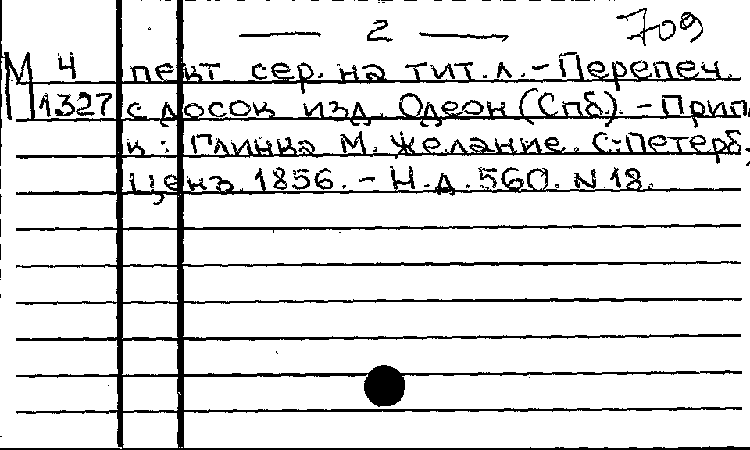 — 2 — 709
М 4 пект. сер. на тит. л. – Перепеч.
1327 с досок изд. Одеон (Спб). – Прип.
к: Глинка М. Желание. С.-Петерб.,
Ценз. 1856. – Н. д. 560. N 18.